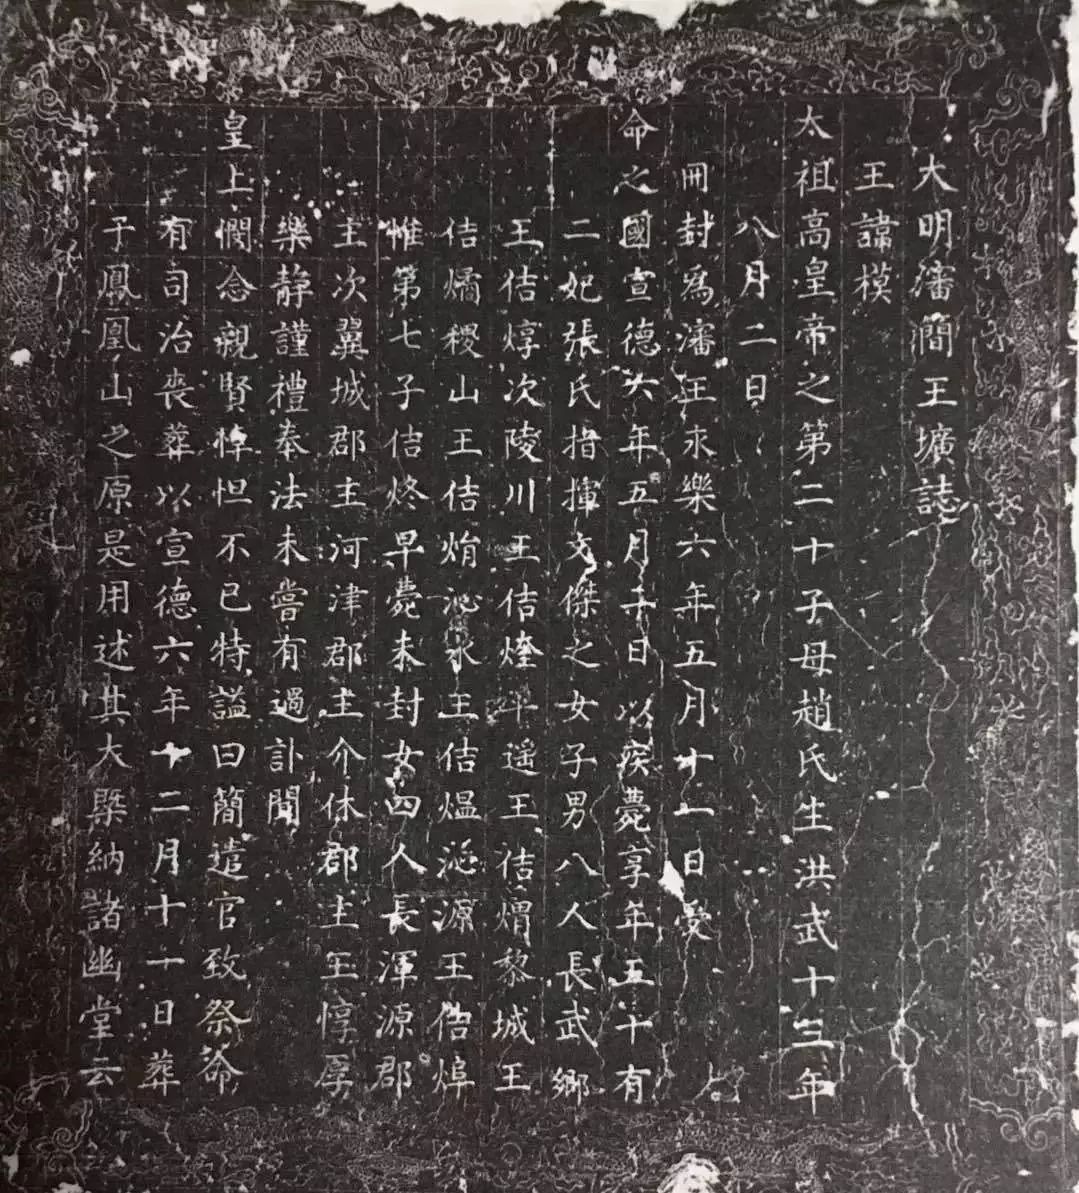 大明瀋簡王壙誌
王諱模
太祖高皇帝之第二十子母趙氏生洪武十三年
八月二日
冊封為瀋王永樂六年五月十一日受
命之國宣德六年五月 日以疾薨享年五十有
二妃張氏指揮文傑之女子男八人長武鄉
王佶焞次陵川王佶煃平遙王佶熠黎城王
佶燏稷山王佶焇沁水王佶熅沁源王佶焞
惟第七子佶炵早薨未封女四人長渾源郡
主次翼城郡主河津郡主介休郡主王惇厚
樂靜謹禮奉法未嘗有過訃聞
皇上憫念親賢悼怛不已特謚曰簡遣官致祭命
有司治喪葬以宣德六年十二月十一日葬
于鳳凰山之原是用述其大槩納諸幽堂云